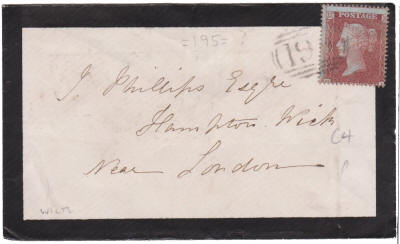 =195= ?
POSTAGE
J. Phillips Esqre
Hampton Wick
Near London
C4